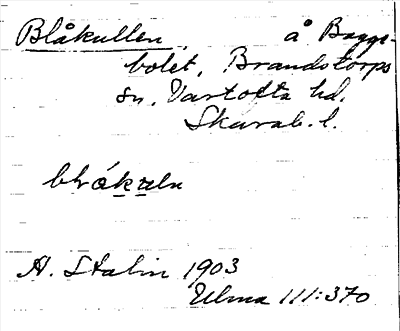 Blåkullen, å Bagge-
bolet, Brandstorps
sn, Vartofta hd,
Skarab. l.
blåkuln
A. Stalin 1903
Ulma 111:370